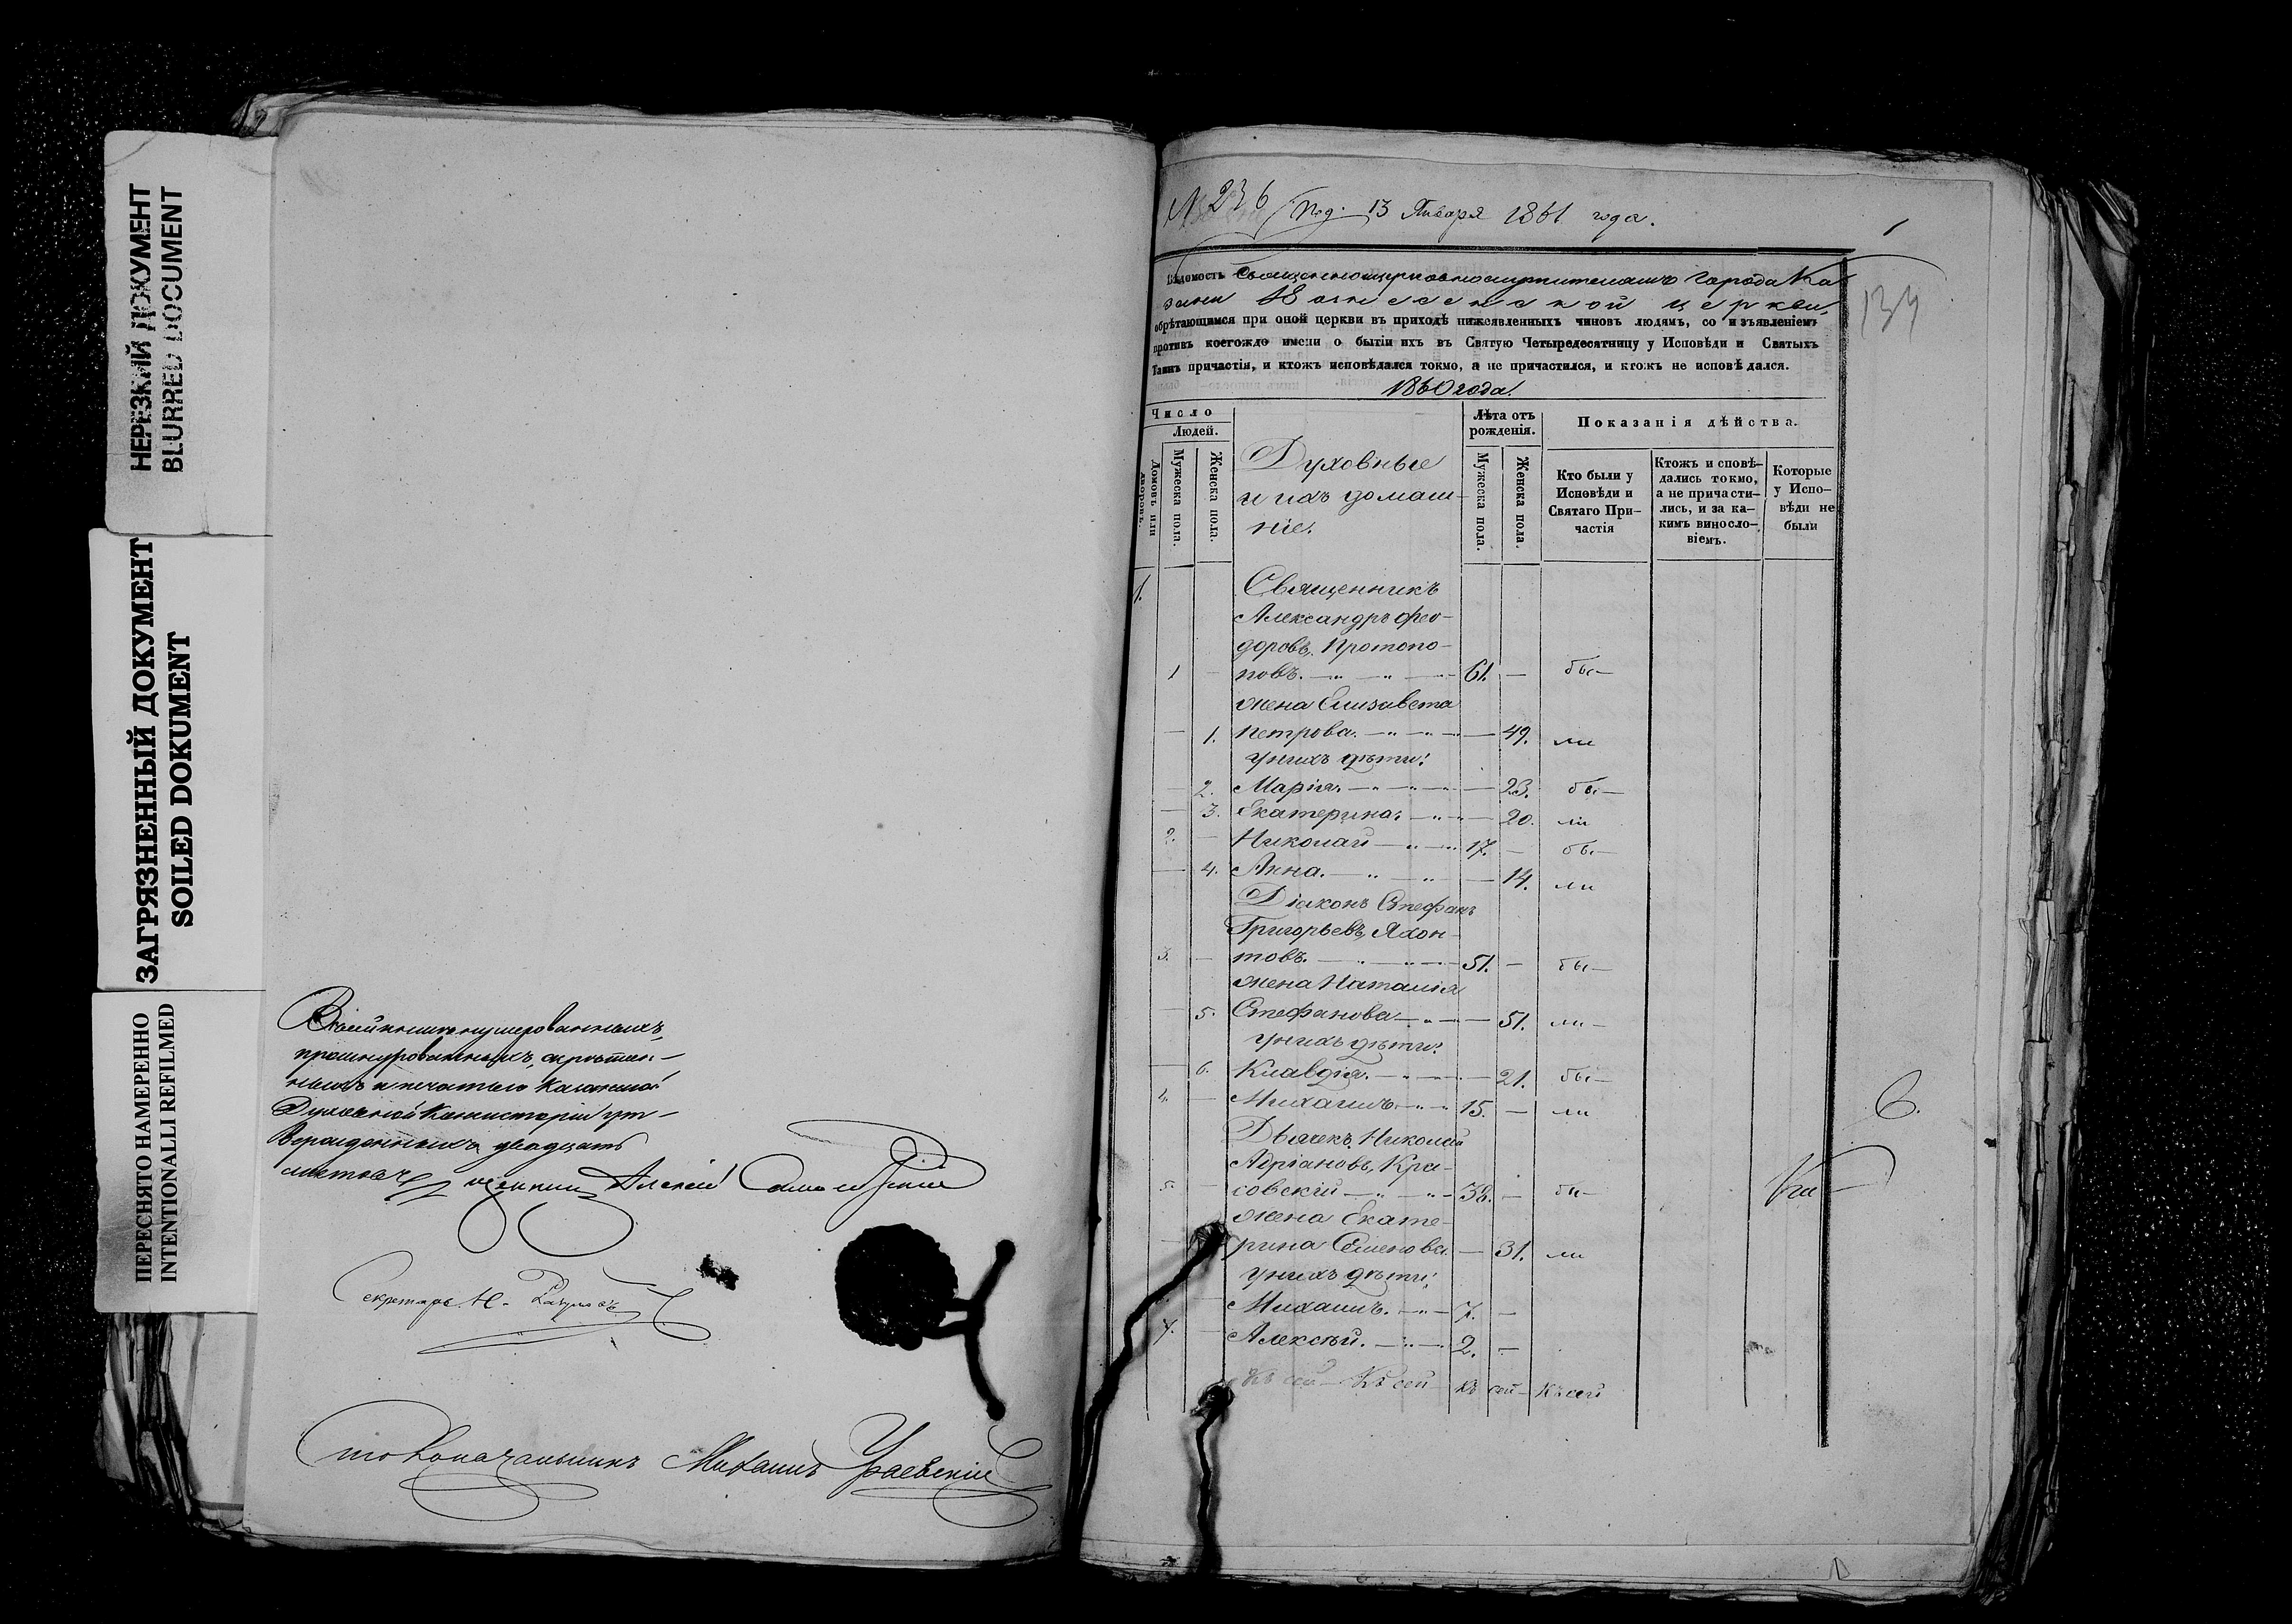 НЕРЕЗКИЙ ДОКУМЕНТ
BLURRED DOCUMENT
ЗАГРЯЗНЕННЫЙ ДОКУМЕНТ
SOILED DOKUMENT
ПЕРЕСНЯТО НАМЕРЕННО
INTENTIONALLI REFILMED
В сей книге нумерованныхъ,
прошнурованныхъ, скрѣплен-
ныхъ и печатью Казанской
Духовной Консисторіи ут-
вержденныхъ двадцать
листовъ
Секретарь Н.
Столоначальникъ Михаилъ
№ 236 Под. 13 Января 1861 года.
1
134
Вѣдомость Священноцерковнослужителямъ города Ка
зани Вознесенской церкви,
обрѣтающимся при оной церкви въ приходѣ нижеявленныхъ чиновъ людямъ, со изъявленіемъ
противъ коегождо имени о бытіи ихъ въ Святую Четыредесятницу у Исповѣди и Святыхъ
Таинъ причастія, и ктожъ исповѣдался токмо, а не причастился, и ктожъ не исповѣдался.
1860 года.
Число
Людей.
Домовъ или дворовъ.
Мужеска пола.
Женска пола.
Духовные
и ихъ домаш-
ніе.
Лѣта отъ
рожденія.
Мужеска пола.
Женска пола.
Показанія дѣйства.
Кто были у
Исповѣди и
Святаго При-
частія
Ктожъ исповѣ-
дались токмо,
а не причасти-
лись, и за ка-
кимъ винсло-
віемъ.
Которые
у Испо-
вѣди не
были
1. Священникъ
Александръ Ѳео-
доровъ Протопо-
1 — повъ. — „ — „ — 61. — бы-
жена Елизавета
— 1. Петрова. — „ — „ — 49. ли
у нихъ дѣти:
— 2. Марія. — „ — „ — 23. бы-
— 3. Екатерина. — „ — 20. ли
2. — Николай — „ — 17. — бы-
— 4. Анна. — „ — „ — 14. ли
Діаконъ Стефанъ
Григорьевъ Яхон-
3. — товъ. — „ — „ — 51. — бы-
жена Наталія
— 5. Стефанова — „ — 51. ли-
у нихъ дѣти:
— 6. Клавдія. — „ — 21. бы-
4. — Михаилъ. — „ — 15. — ли
Дьячекъ Николай
Адріановъ Кра-
5. — совскій — „ — „ — 38. — бы-
жена Екате-
рина Семенова. — 31. ли
у нихъ дѣти:
Михаилъ. — „ — 7. —
7. — Алексѣй. — „ — 2. —
Къ сей — Къ сей — къ сей — Къ сей
6.